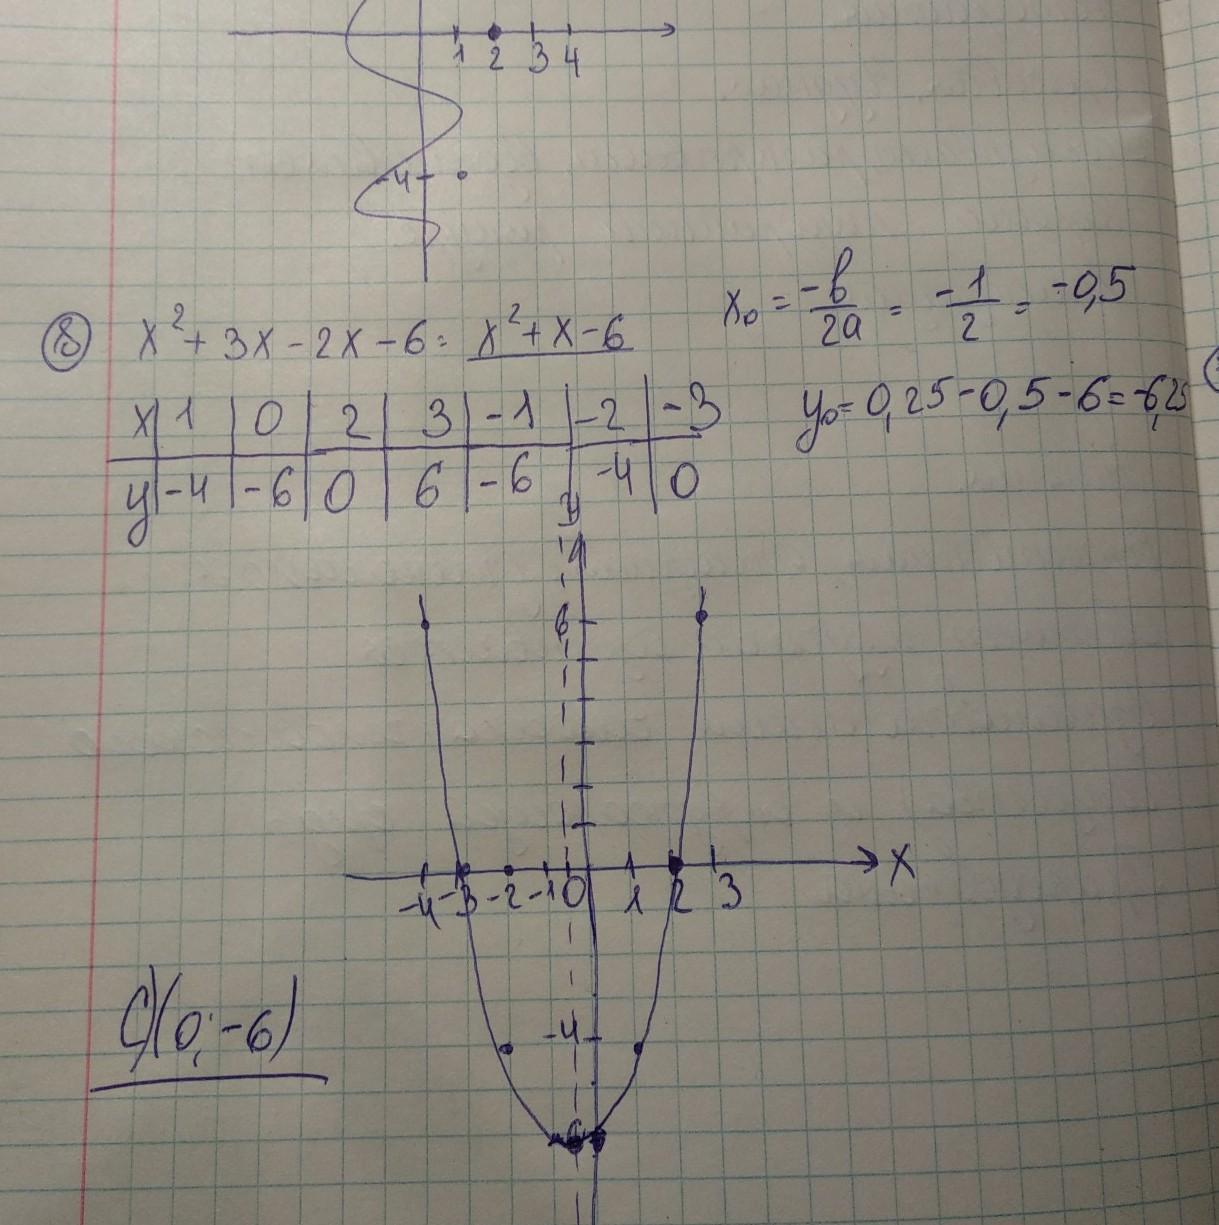 1 2 3 4
-4
x₀ = -b/2a = -1/2 = -0,5
⑱ x² + 3x - 2x - 6 = x² + x - 6
y₀ = 0,25 - 0,5 - 6 = -6,25
x 1 0 2 3 -1 -2 -3
y -4 -6 0 6 -6 -4 0
y
6
x
-4 -3 -2 -1 0 1 2 3
-4
C)(0; -6)
-6